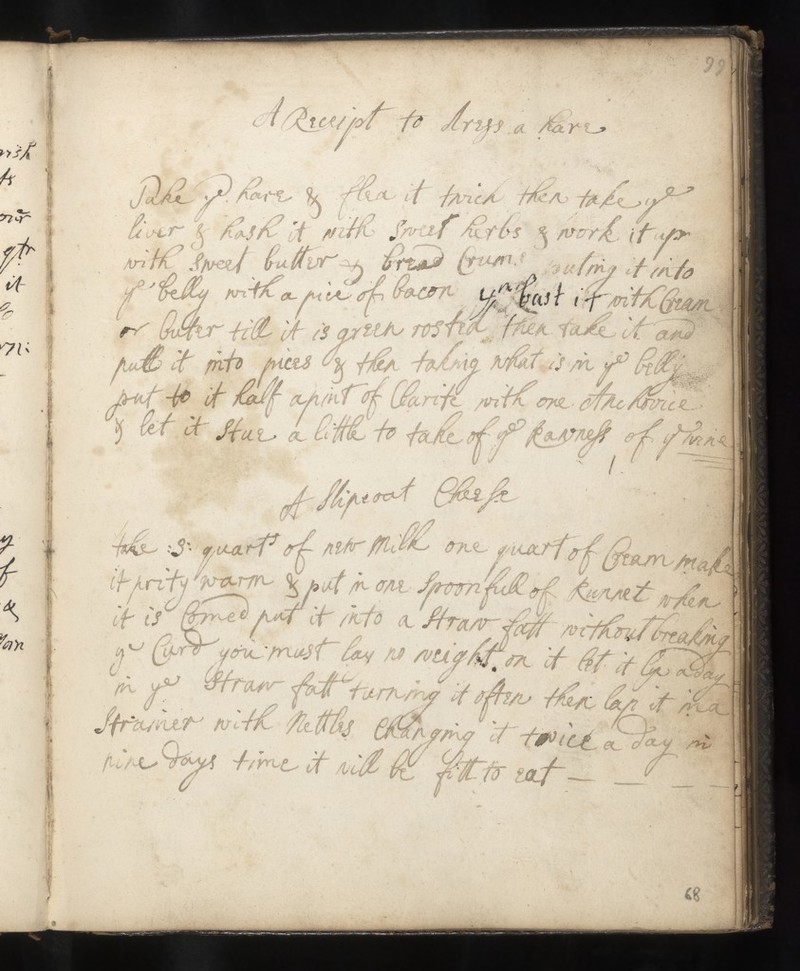 99
A Receipt to dress a hare
Take ye hare & flea it twich then take ye
liver & hash it with sweet herbs & work it up
with sweet butter & bread Crums puting it into
ye belly with a pice of bacon yn bast it with Cream
or buter till it is green rosted then take it and
pull it into pices & then taking what is in ye belly
put to it half a pint of Clarite with one Anchovice
& let it stue a little to take of ye Rawness of ye wine
A Slipcoat Cheese
take :3: quarts of new milk one quart of Cream make
it prity warm & put in one spoonfull of Runnet when
it is Comed put it into a straw fatt without breaking
ye Curd you must lay no weight on it let it ly a day
in ye straw fatt turning it often then lap it in a
strainer with Nettles Changing it twice a day in
nine days time it will be fitt to eat — — — —
68
arish
ts
our
qtr
it
of
&